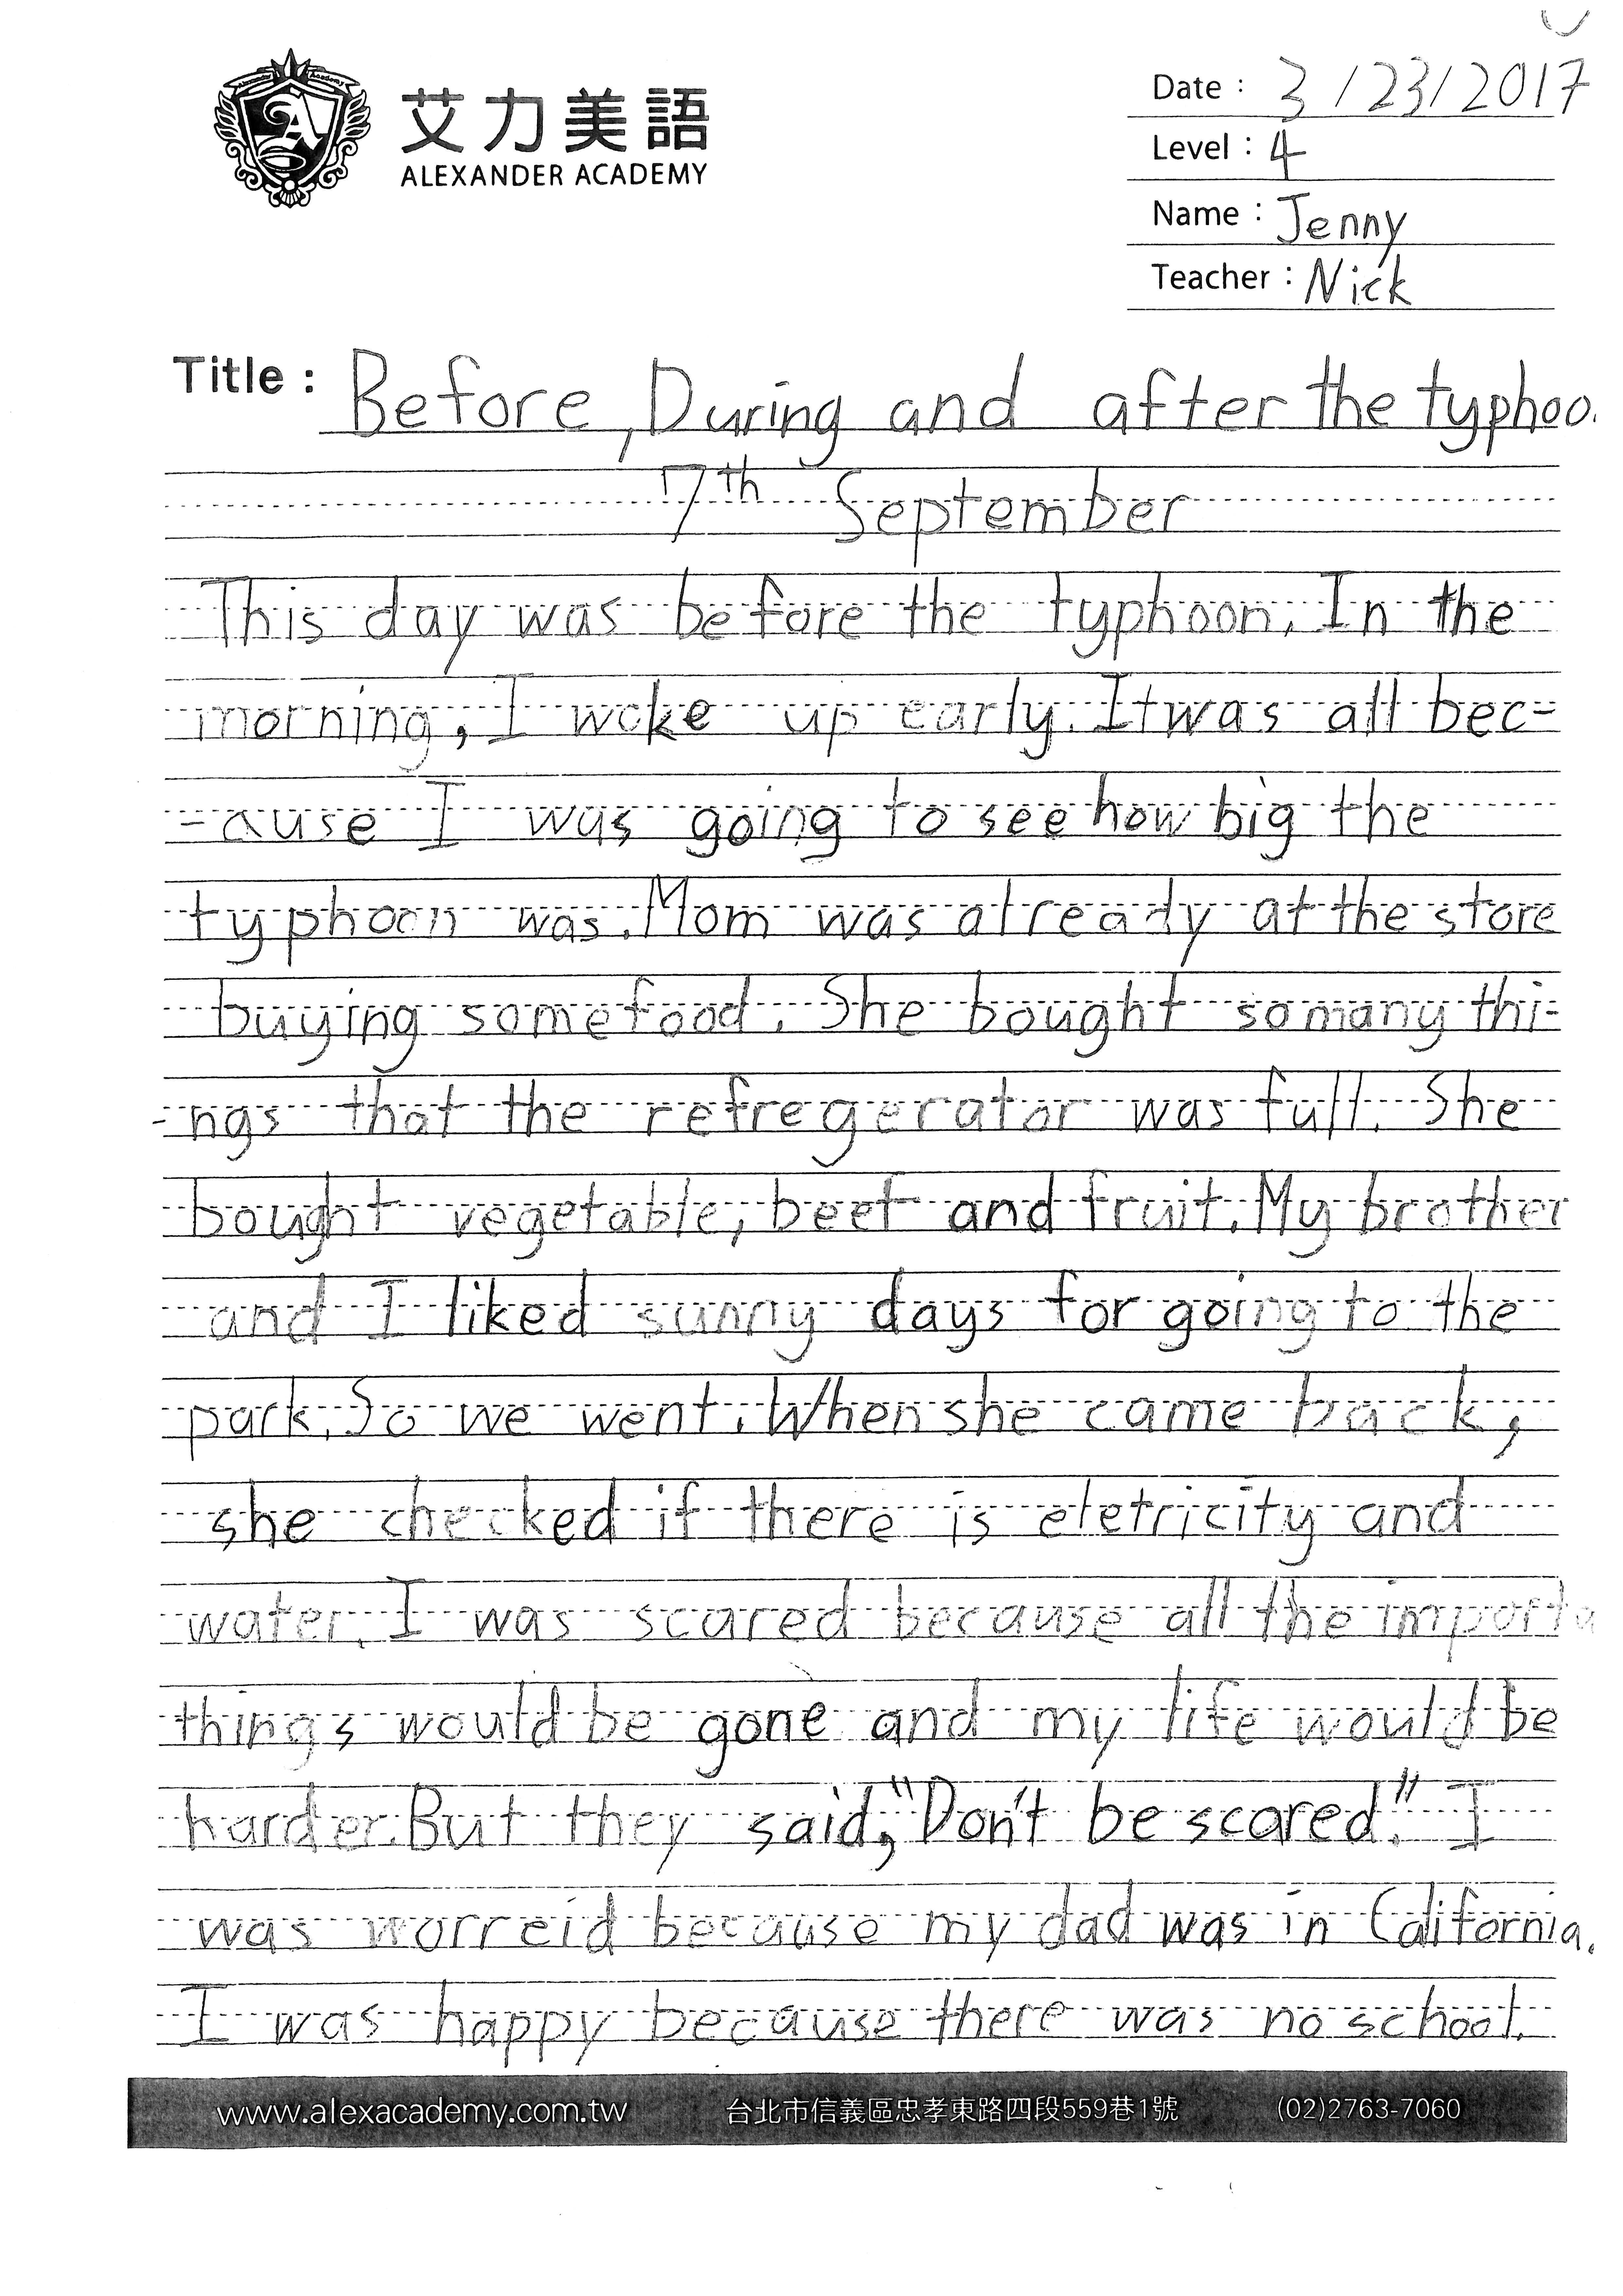 艾力美語
ALEXANDER ACADEMY
Date : 3/23/2017
Level : 4
Name : Jenny
Teacher : Nick
Title : Before, During and after the typhoo
7th September
This day was before the typhoon. In the
morning, I woke up early. It was all bec-
-ause I was going to see how big the
typhoon was. Mom was already at the store
buying some food. She bought so many thi-
-ngs that the refregerator was full. She
bought vegetable, beef and fruit. My brother
and I liked sunny days for going to the
park. So we went. When she came back,
she checked if there is eletricity and
water. I was scared because all the importa
things would be gone and my life would be
harder. But they said, "Don't be scared." I
was worreid because my dad was in California.
I was happy because there was no school.
www.alexacademy.com.tw 台北市信義區忠孝東路四段559巷1號 (02)2763-7060